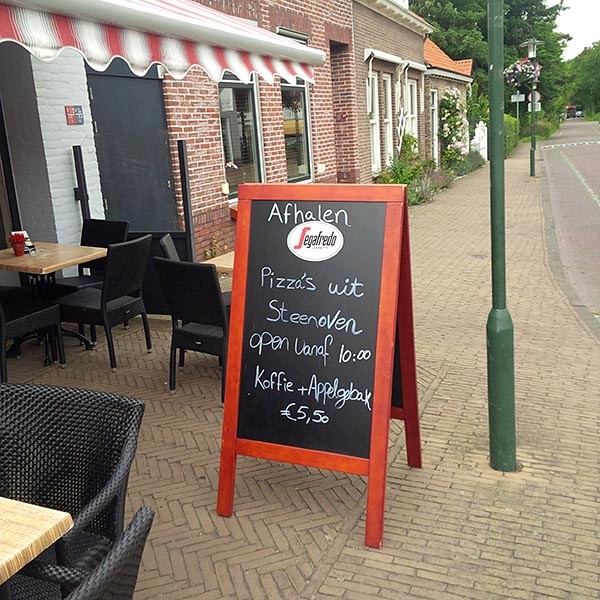 Afhalen
Segafredo
Pizza's uit
Steenoven
open vanaf 10:00
Koffie + Appelgebak
€5,50